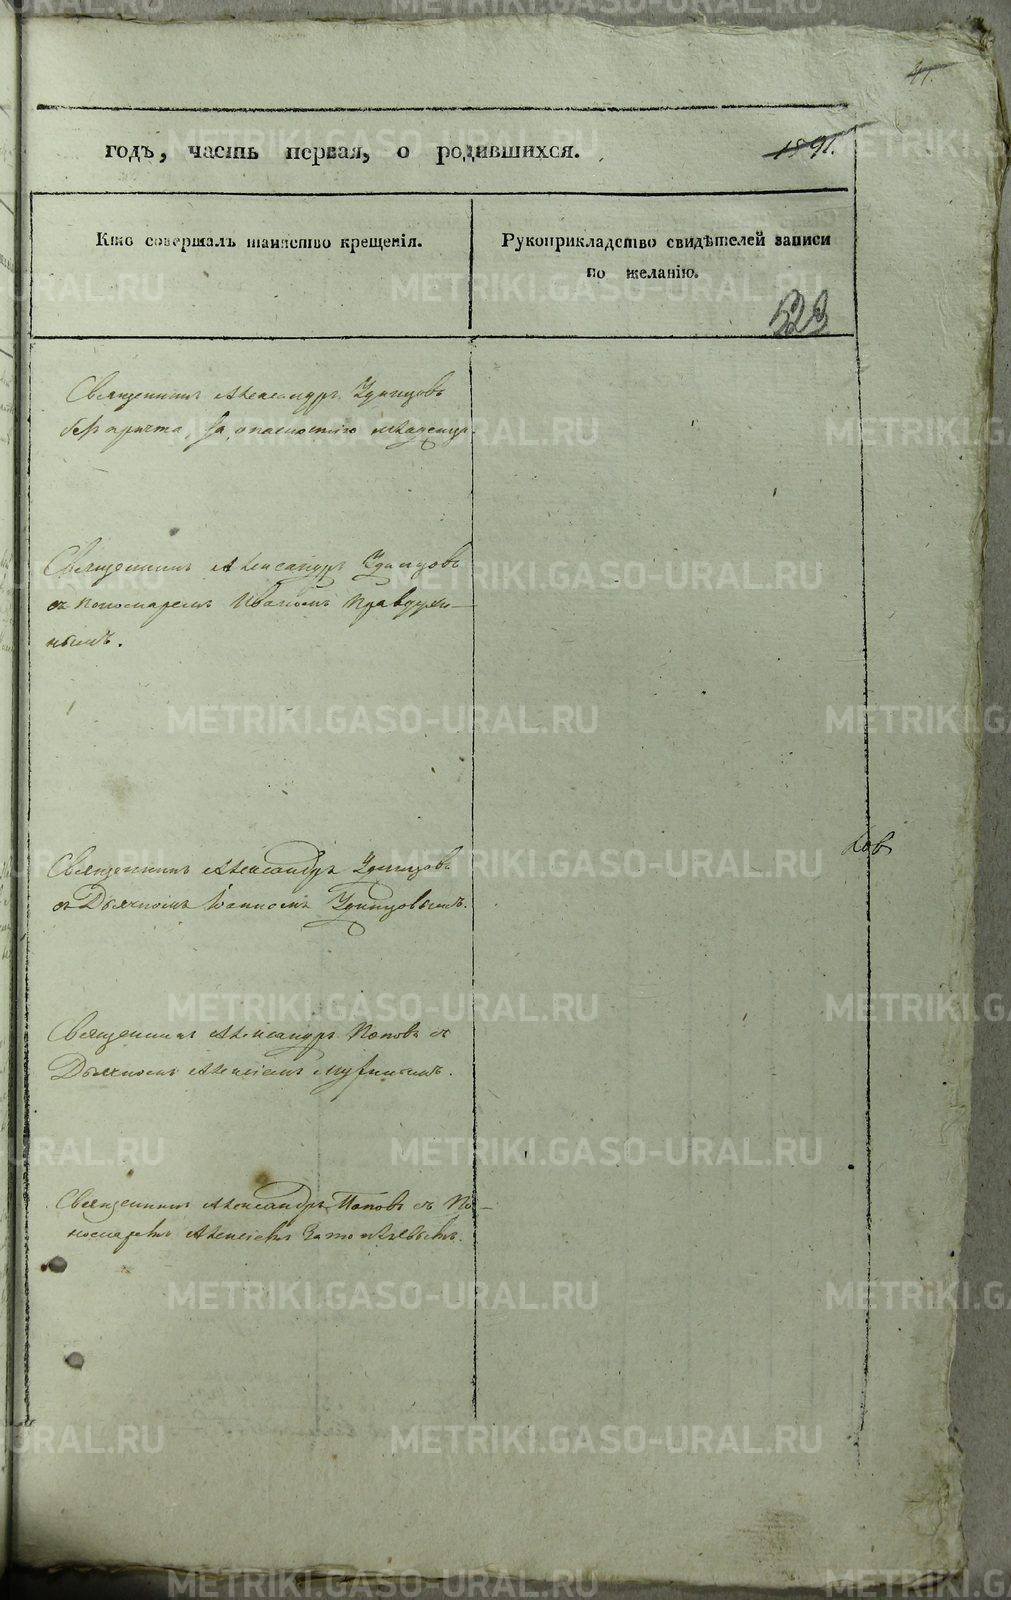 41.
годъ, часть первая, о родившихся.
1891.
Кто совершалъ таинство крещенія.
Рукоприкладство свидѣтелей записи
по желанію.
523
Священникъ Александръ Удинцовъ
безъ причта, за опасностію младенца.
Священникъ Александръ Удинцовъ
съ Пономаремъ Иваномъ Правдухи-
нымъ.
Священникъ Александръ Удинцовъ
съ Дьячкомъ Іоанномъ Удинцовымъ.
Священникъ Александръ Поповъ съ
Дьячкомъ Алексіемъ
Священникъ Александръ Поповъ съ По-
номаремъ Алексіемъ
METRIKI.GASO-URAL.RU